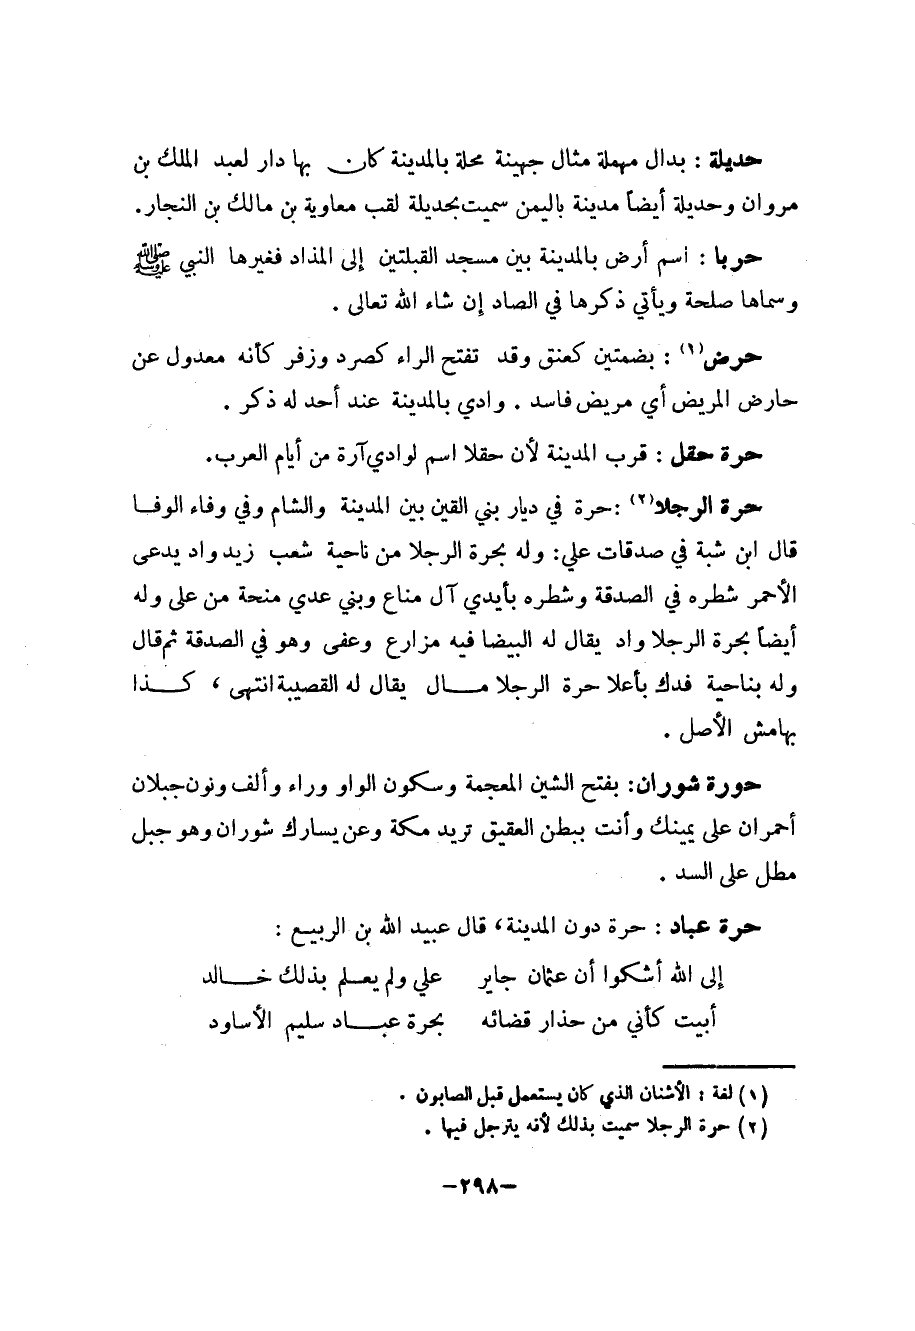 حديلة : بدال مهملة مثال جهينة محلة بالمدينة كان بها دار لعبد الملك بن
مروان وحديلة أيضاً مدينة باليمن سميت بحديلة لقب معاوية بن مالك بن النجار.
حربا : اسم أرض بالمدينة بين مسجد القبلتين إلى المذاد فغيرها النبي ﷺ
وسماها صلحة ويأتي ذكرها في الصاد إن شاء الله تعالى .
حرض(١) : بضمتين كعنق وقد تفتح الراء كصرد وزفر كأنه معدول عن
حارض المريض أي مريض فاسد . وادي بالمدينة عند أحد له ذكر .
حرة حقل : قرب المدينة لأن حقلا اسم لوادي آرة من أيام العرب.
حرة الرجلا(٢) : حرة في ديار بني القين بين المدينة والشام وفي وفاء الوفا
قال ابن شبة في صدقات علي: وله بحرة الرجلا من ناحية شعب زيد واد يدعى
الأحمر شطره في الصدقة وشطره بأيدي آل مناع وبني عدي منحة من على وله
أيضاً بحرة الرجلا واد يقال له البيضا فيه مزارع وعفى وهو في الصدقة ثم قال
وله بناحية فدك بأعلا حرة الرجلا مال يقال له القصيبة انتهى ، كذا
بهامش الأصل .
حورة شوران: بفتح الشين المعجمة وسكون الواو وراء وألف ونون جبلان
أحمران على يمينك وأنت ببطن العقيق تريد مكة وعن يسارك شوران وهو جبل
مطل على السد .
حرة عباد : حرة دون المدينة، قال عبيد الله بن الربيع :
إلى الله أشكوا أن عثمان جاير علي ولم يعلم بذلك خالد
أبيت كأني من حذار قضائه بحرة عباد سليم الأساود
(١) لغة : الأشنان الذي كان يستعمل قبل الصابون .
(٢) حرة الرجلا سميت بذلك لأنه يترجل فيها .
-٢٩٨-